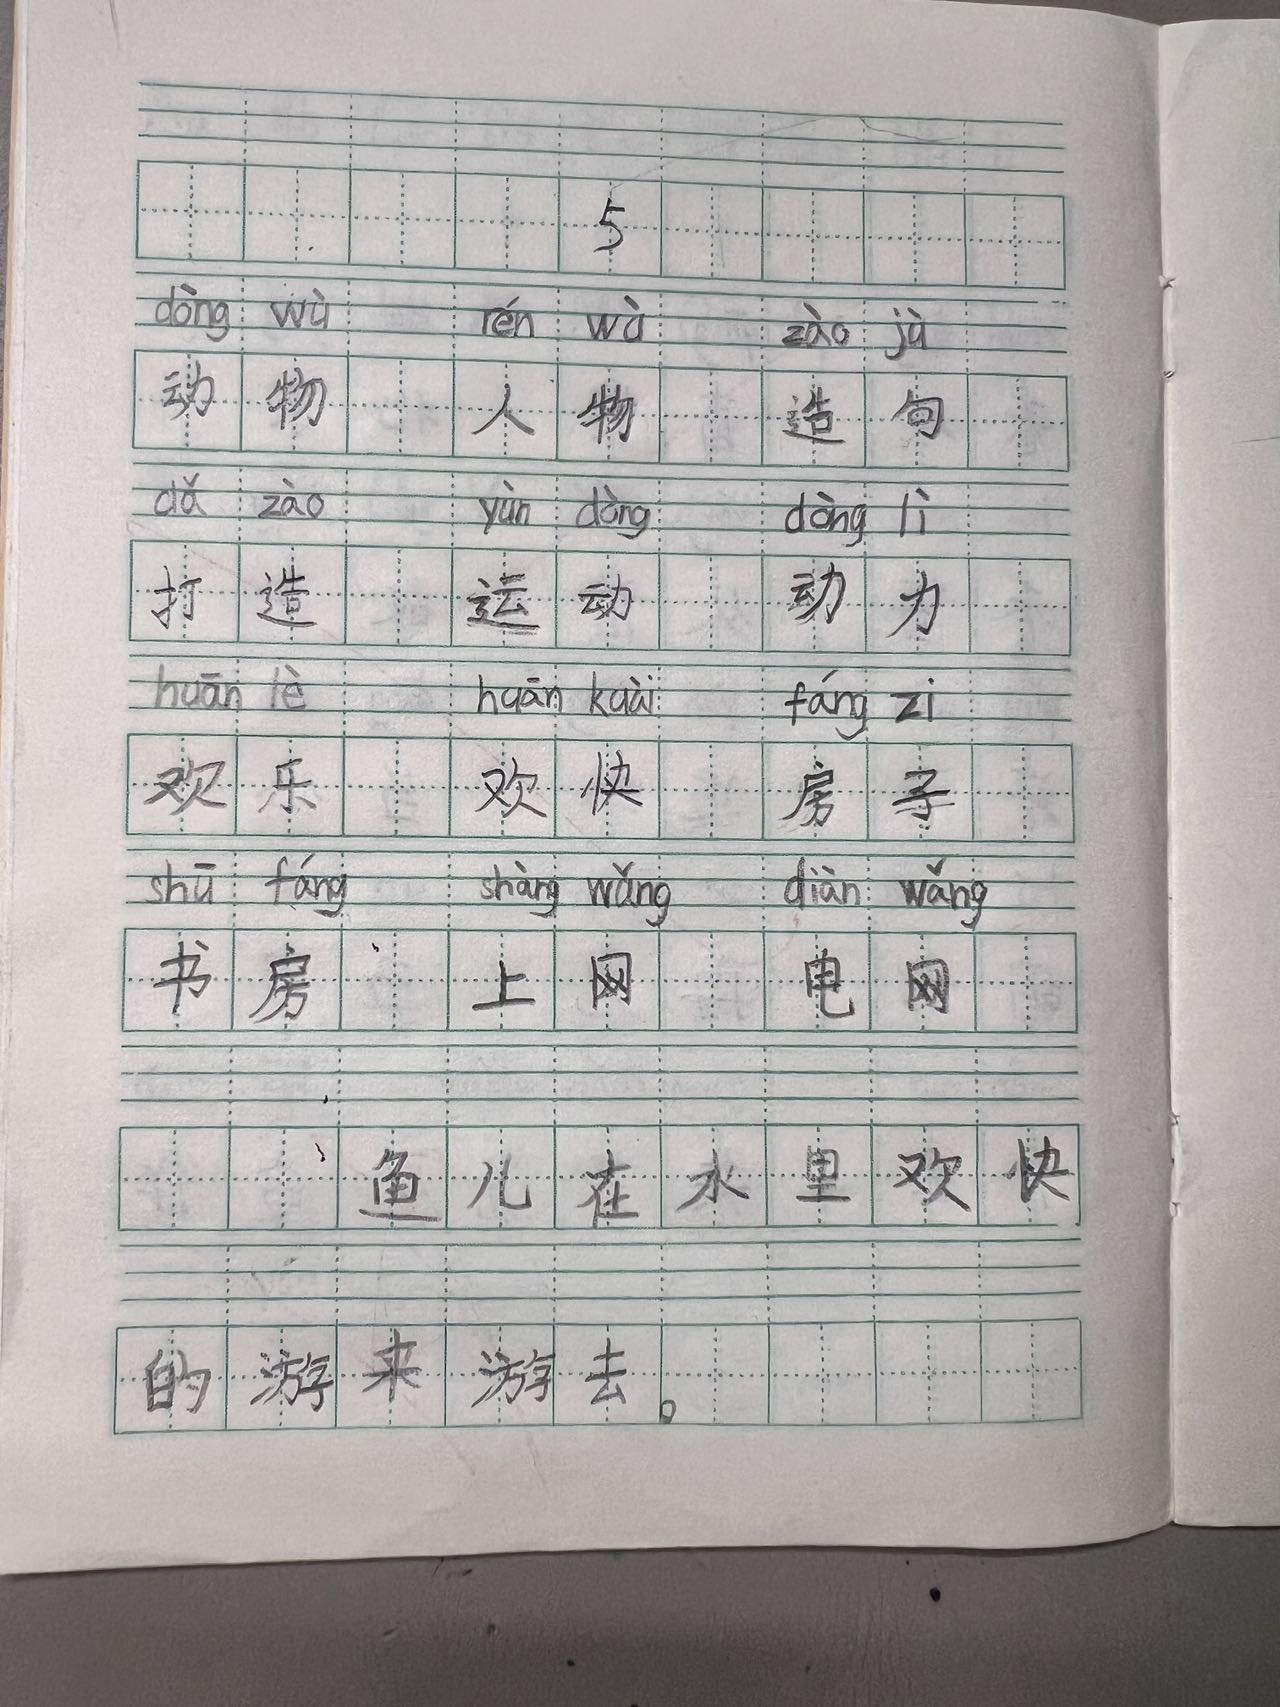 5
dòng wù rén wù zào jù
动物 人物 造句
dǎ zào yùn dòng dòng lì
打造 运动 动力
huān lè huān kuài fáng zi
欢乐 欢快 房子
shū fáng shàng wǎng diàn wǎng
书房 上网 电网
鱼儿在水里欢快
的游来游去。